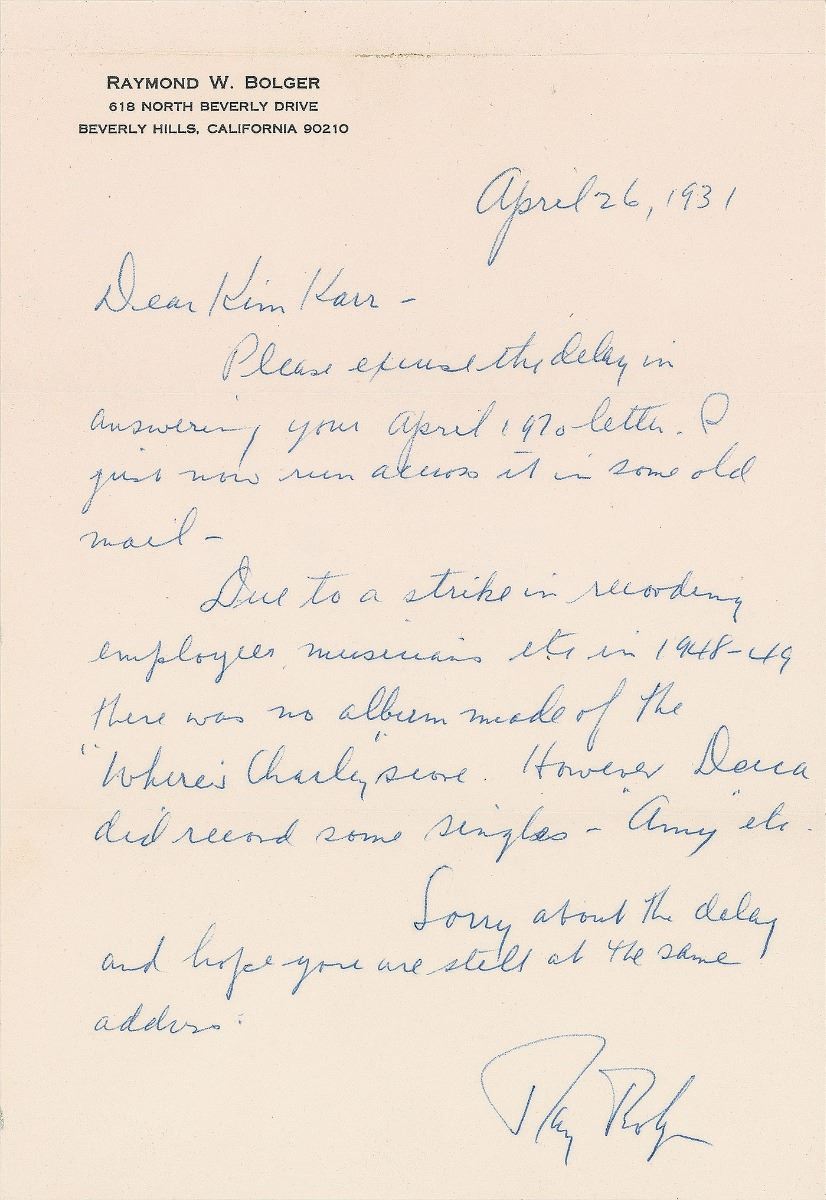 RAYMOND W. BOLGER
618 NORTH BEVERLY DRIVE
BEVERLY HILLS, CALIFORNIA 90210
April 26, 1931
Dear Kim Karr -
Please excuse the delay in
answering your April 1970 letter. I
just now run across it in some old
mail -
Due to a strike in recording
employees, musicians etc in 1948-49
there was no album made of the
"Where's Charley" score. However Decca
did record some singles - "Amy" etc.
Sorry about the delay
and hope you are still at the same
address.
Ray Bolger